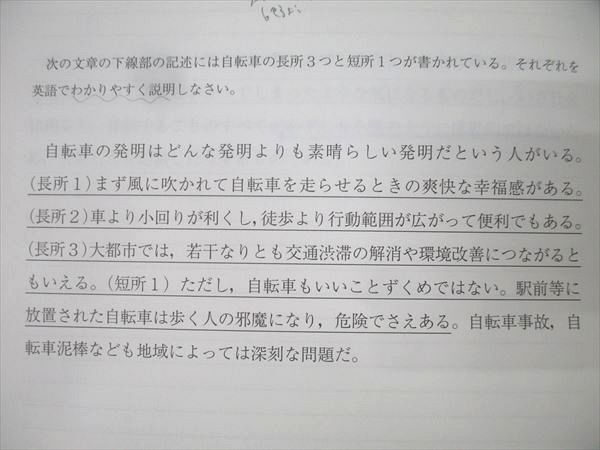 次の文章の下線部の記述には自転車の長所３つと短所１つが書かれている。それぞれを
英語でわかりやすく説明しなさい。
自転車の発明はどんな発明よりも素晴らしい発明だという人がいる。
(長所１)まず風に吹かれて自転車を走らせるときの爽快な幸福感がある。
(長所２)車より小回りが利くし，徒歩より行動範囲が広がって便利でもある。
(長所３)大都市では，若干なりとも交通渋滞の解消や環境改善につながると
もいえる。(短所１) ただし，自転車もいいことずくめではない。駅前等に
放置された自転車は歩く人の邪魔になり，危険でさえある。自転車事故，自
転車泥棒なども地域によっては深刻な問題だ。